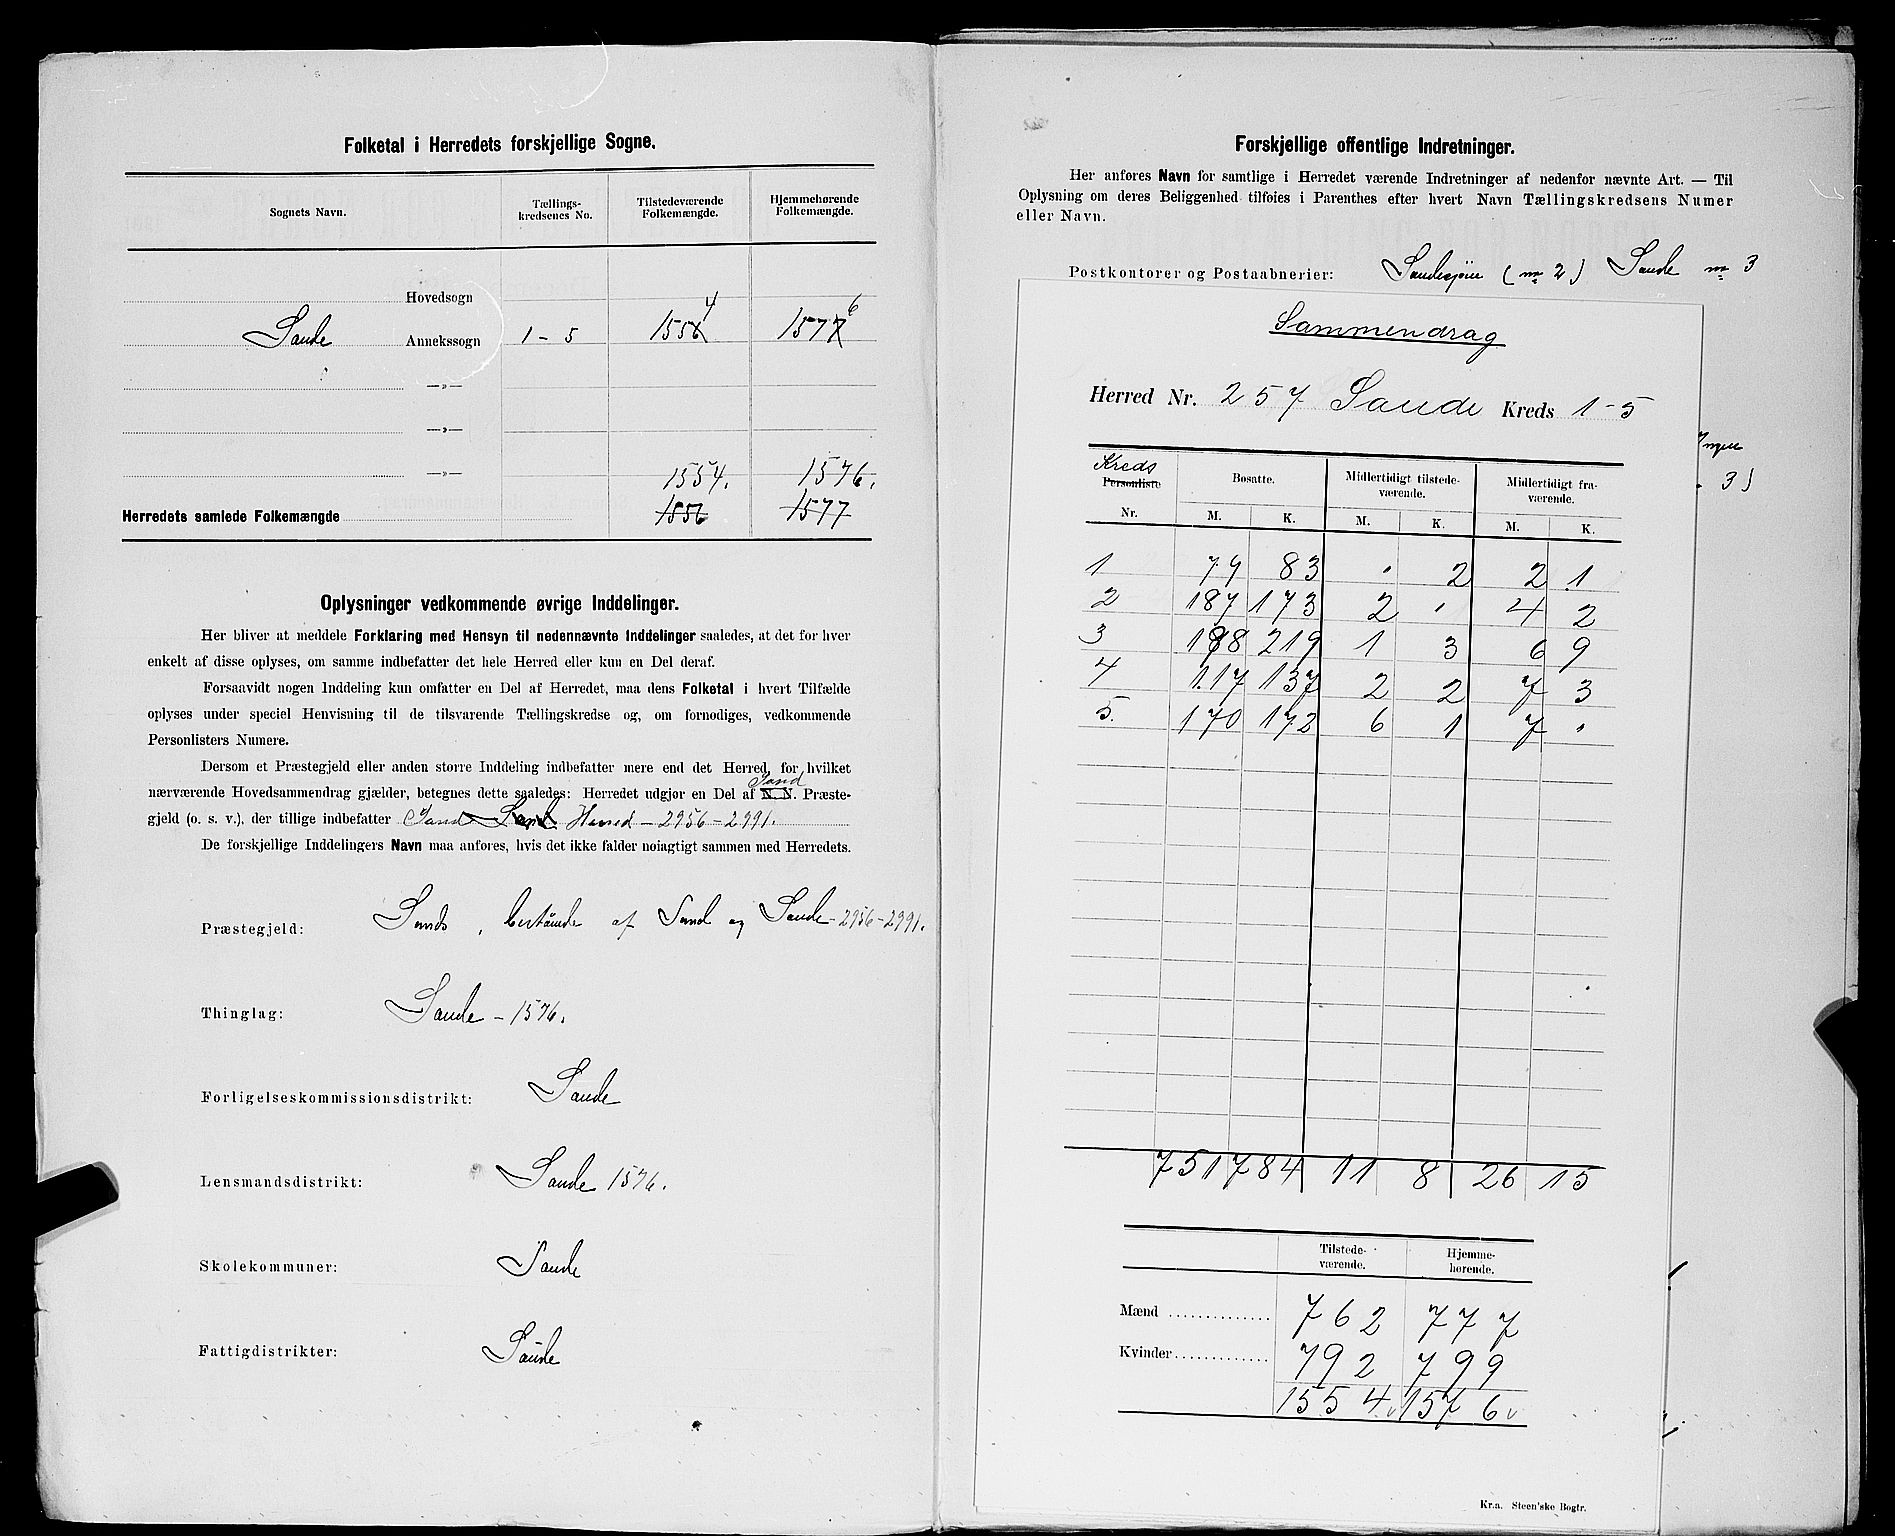 Folketal i Herredets forskjellige Sogne.
Sognets Navn.
Tællings-
kredsenes No.
Tilstedeværende
Folkemængde.
Hjemmehørende
Folkemængde.
Hovedsogn
4 6
Sande Annekssogn 1-5 1556 1577
—»—
—»—
—»— 1554. 1576.
Herredets samlede Folkemængde 1556 1577
Oplysninger vedkommende øvrige Inddelinger.
Her bliver at meddele Forklaring med Hensyn til nedennævnte Inddelinger saaledes, at det for hver
enkelt af disse oplyses, om samme indbefatter det hele Herred eller kun en Del deraf.
Forsaavidt nogen Inddeling kun omfatter en Del af Herredet, maa dens Folketal i hvert Tilfælde
oplyses under speciel Henvisning til de tilsvarende Tællingskredse og, om fornødiges, vedkommende
Personlisters Numere.
Dersom et Præstegjeld eller anden større Inddeling indbefatter mere end det Herred, for hvilket
Sand
nærværende Hovedsammendrag gjælder, betegnes dette saaledes: Herredet udgjør en Del af N. N. Præste-
gjeld (o. s. v.), der tillige indbefatter Sand Sand Herred - 2956-2991.
De forskjellige Inddelingers Navn maa anføres, hvis det ikke falder nøiagtigt sammen med Herredets.
Præstegjeld: Sands, bestående af Sand og Sande-2956-2991.
Thinglag: Sande - 1576.
Forligelseskommissionsdistrikt: Sande
Lensmandsdistrikt: Sande 1576.
Skolekommuner: Sande
Fattigdistrikter: Sande
Forskjellige offentlige Indretninger.
Her anføres Navn for samtlige i Herredet værende Indretninger af nedenfor nævnte Art. — Til
Oplysning om deres Beliggenhed tilføies i Parenthes efter hvert Navn Tællingskredsens Numer
eller Navn.
Postkontorer og Postaabnerier: Sandesjøen (no 2) Sande no 3
Sammendrag
Herred Nr. 257 Sande Kreds 1-5
3)
Kreds
Personliste
Nr.
Bosatte.
Midlertidigt tilstede-
værende.
Midlertidigt fra-
værende.
M. K. M. K. M. K.
1 79 83 . 2 2 1
2 187 173 2 . 4 2
3 198 219 1 3 6 9
4 117 137 2 2 7 3
5. 170 172 6 1 7 .
751 784 11 8 26 15
Tilstede-
værende.
Hjemme-
hørende.
Mænd 762 777
Kvinder 792 799
1554 1576
Kr.a. Steen'ske Bogtr.